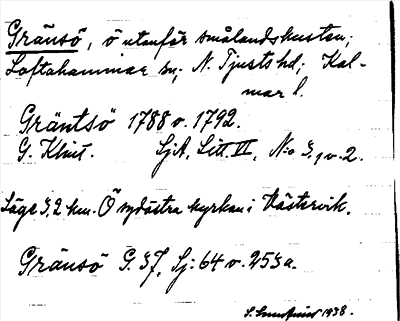 Gränsö, ö utanför smålandskusten;
Loftahammar sn; N. Tjusts hd; Kal-
mar l.
Gräntsö 1788 o. 1792.
G. Klint. SjA, Litt. VI, No 3, 1 o. 2.
Läge 3,2 km. Ö nydöstra kyrkan i Västervik.
Gränsö G. 37, Sj: 64 o. 253a.
1938.